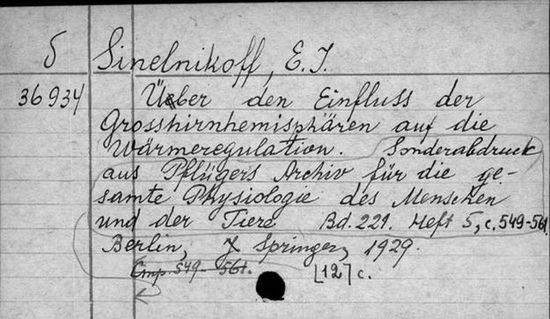 5 Sinelnikoff, E. J.
36934 Ueber den Einfluss der
Grosshirnhemisphären auf die
Wärmeregulation. Sonderabdruck
aus Pflügers Archiv für die ge-
samte Physiologie des Menschen
und der Tiere Bd. 221. Heft 5, c. 549-561.
Berlin, J. Springer, 1929.
Cmp. 549-561. [12] c.